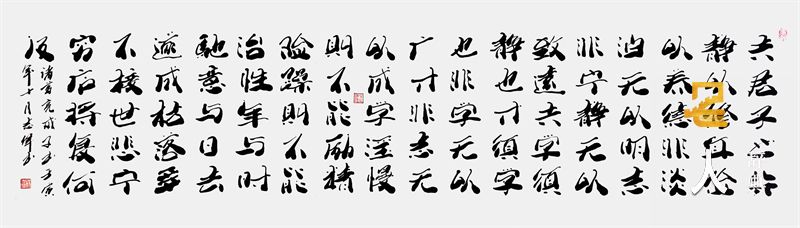 夫君子之行
静以修身俭
以养德非淡
泊无以明志
非宁静无以
致远夫学须
静也才须学
也非学无以
广才非志无
以成学淫慢
则不能励精
险躁则不能
治性年与时
驰意与日去
遂成枯落多
不接世悲守
穷庐将复何
及
诸葛亮诫子书壬寅
年十月